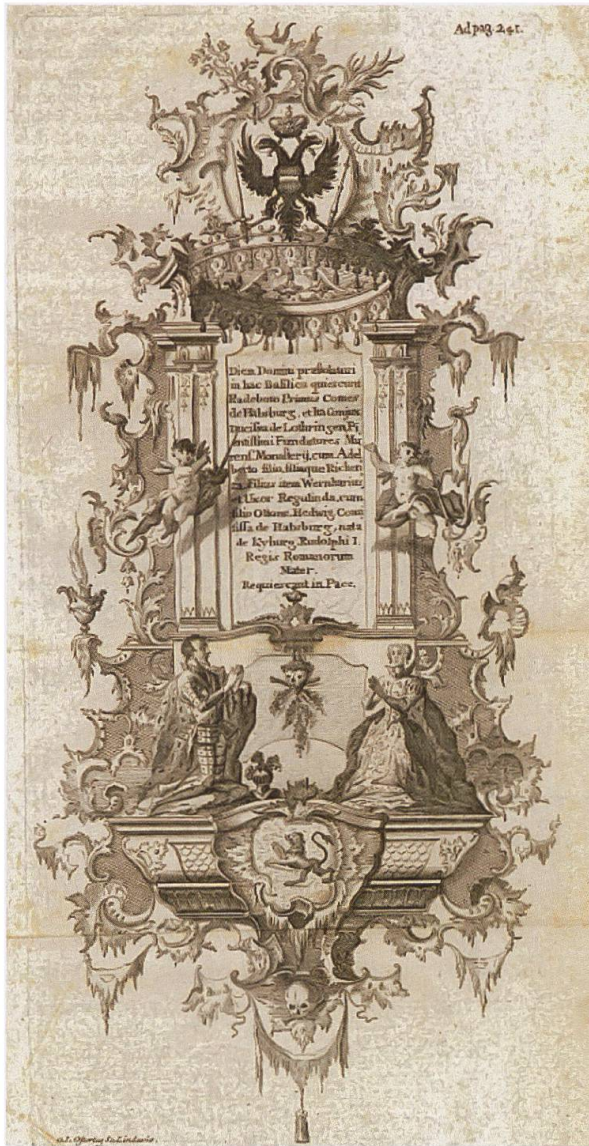 Ad pag. 241.
Diem Domini præstolaturi
in hac Basilica quiescunt
Radeboto Primus Comes
de Habsburg, et Ita Conjux
Ducissa de Lothringen, Pi
entissimi Fundatores Mu
rens. Monasterij, cum Adel
berto filio, filiaque Richen
za, filius item Wernharius
et Uxor Regulinda, cum
filio Ottone. Hedwig Com
itissa de Habsburg, nata
de Kyburg, Rudolphi I.
Regis Romanorum
Mater.
Requiescant in Pace.